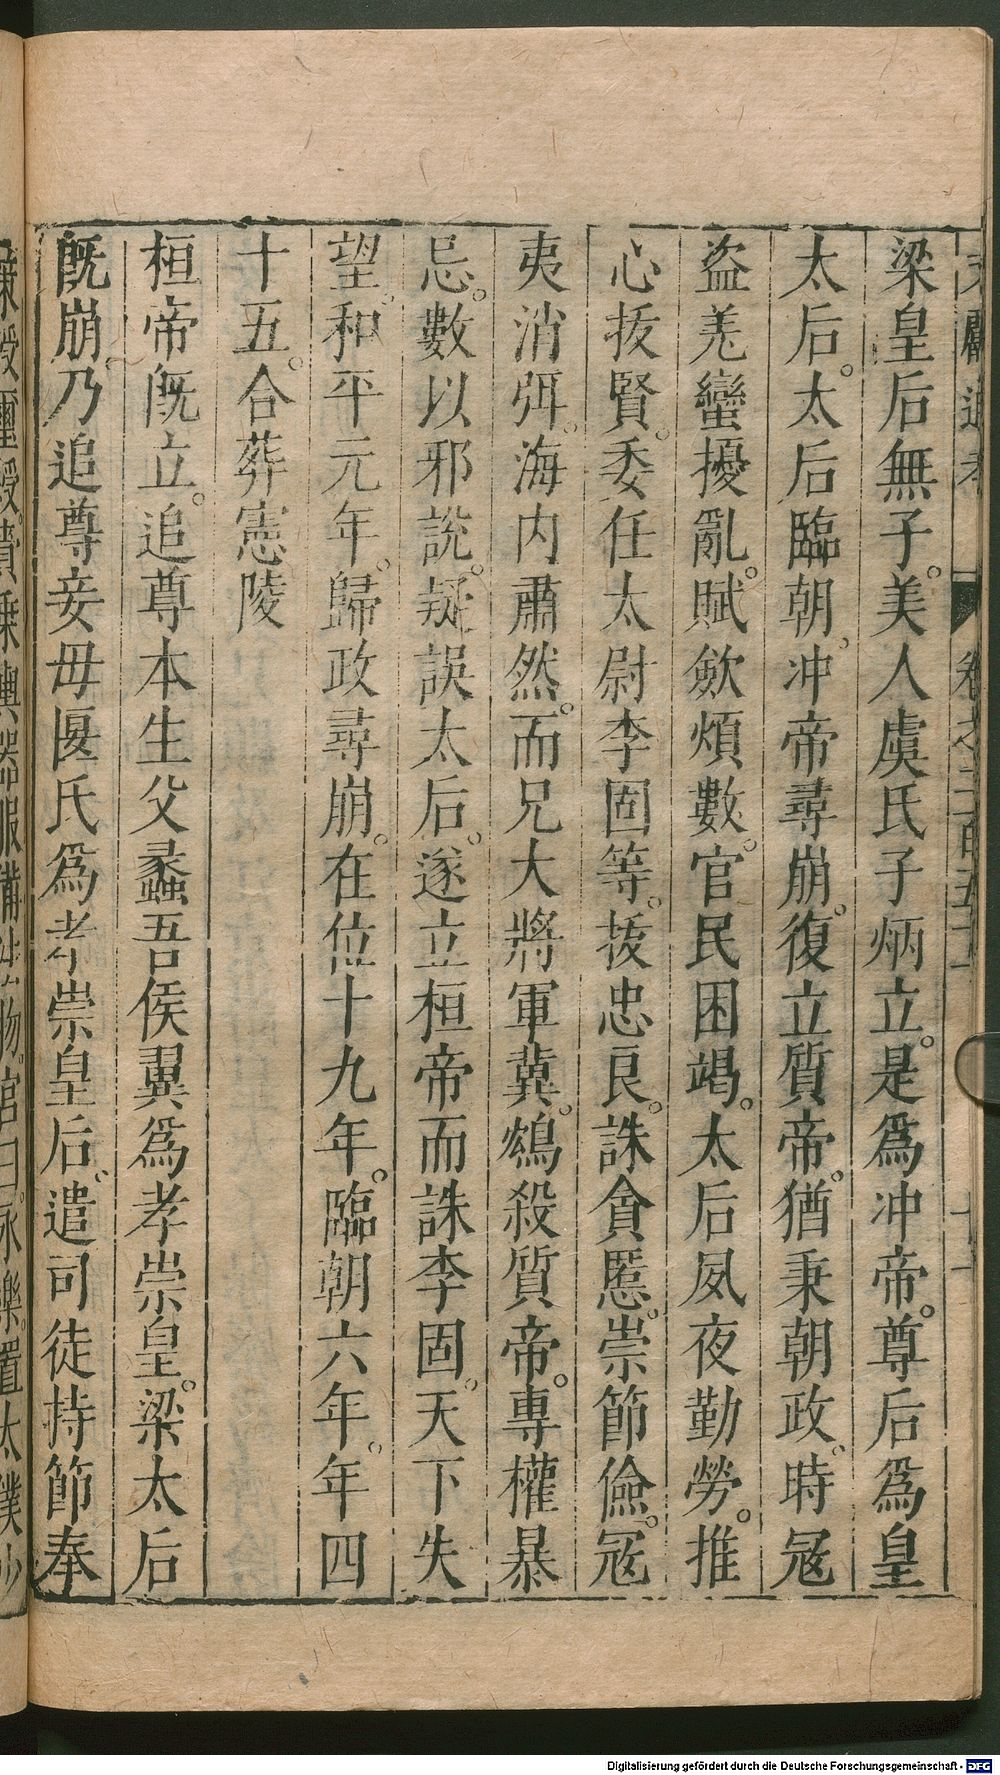 梁皇后無子。美人虞氏子炳立。是爲冲帝。尊后爲皇
太后。太后臨朝。冲帝尋崩。復立質帝。猶秉朝政。時冦
盗羌蠻擾亂。賦歛煩數。官民困竭。太后夙夜勤勞。推
心拔賢。委任太尉李固等。拔忠良。誅貪慝。崇節儉。冦
夷消弭。海内肅然。而兄大將軍冀。鴆殺質帝。專權暴
忌。數以邪說。疑誤太后。遂立桓帝而誅李固。天下失
望。和平元年。歸政尋崩。在位十九年。臨朝六年。年四
十五。合葬憲陵
桓帝旣立。追尊本生父蠡吾侯翼爲孝崇皇。梁太后
旣崩。乃追尊妾母匽氏爲孝崇皇后。遣司徒持節奉
Digitalisierung gefördert durch die Deutsche Forschungsgemeinschaft - DFG